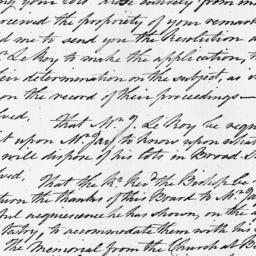 ing your
received the propriety of your remark
ed me to send you the Resolution a
LeRoy to make the application, t
their determination on the subject, as
on the record of their proceedings—
lved,
That Mr J. LeRoy be requ
t upon Mr Jay to know upon what
will dispose of his lots in Broad S
ved,
That the Rt Revd the Bishop be
turn the thanks of this Board to Mr Ja
ful acquiescence he has shown, on the a
Vestry, to accommodate them with his
The Memorial from the Church at B